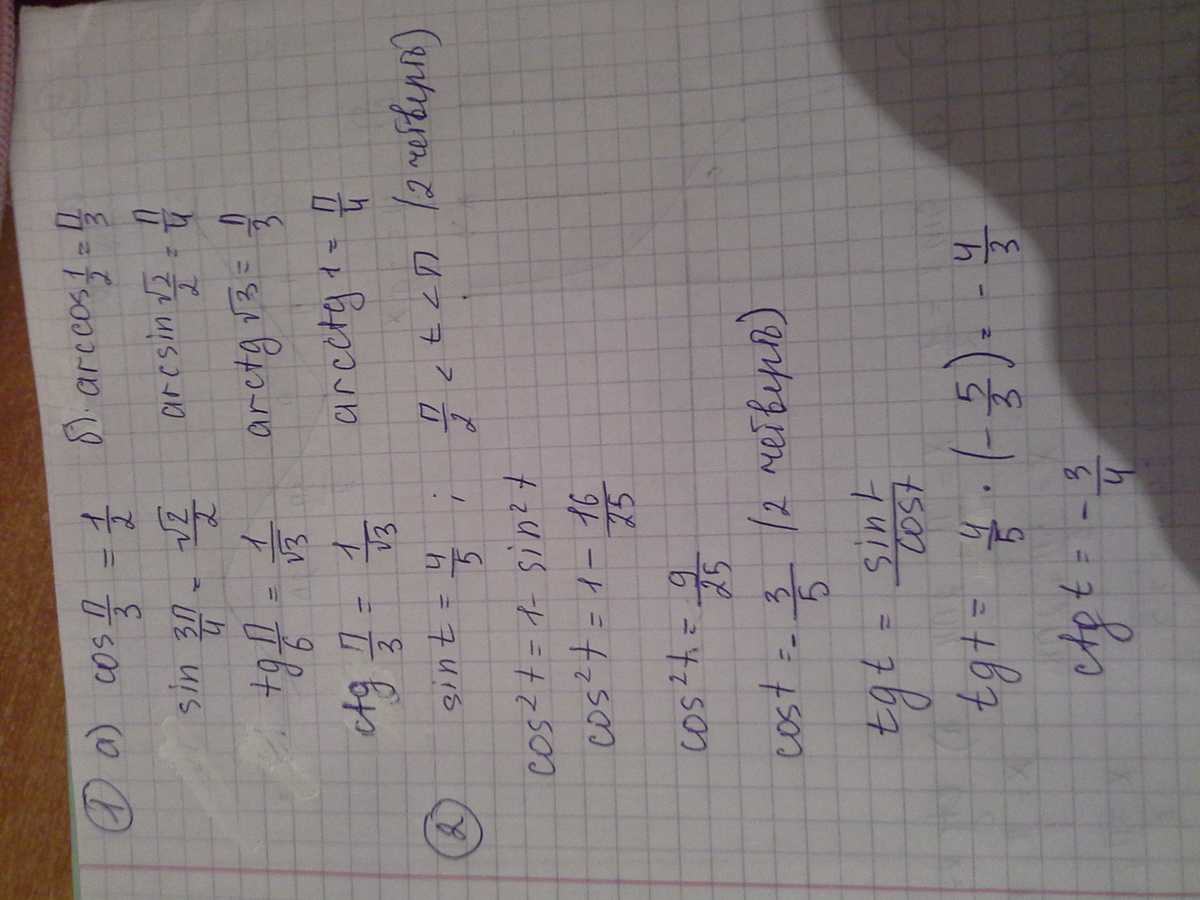 1 а) cos π/3 = 1/2 б). arccos 1/2 = π/3
sin 3π/4 = √2/2 arcsin √2/2 = π/4
tg π/6 = 1/√3 arctg √3 = π/3
ctg π/3 = 1/√3 arcctg 1 = π/4
2 sin t = 4/5 ; π/2 < t < π (2 четверть)
cos² t = 1 - sin² t
cos² t = 1 - 16/25
cos² t = 9/25
cos t = - 3/5 (2 четверть)
tg t = sin t/cos t
tg t = 4/5 · (- 5/3) = - 4/3
ctg t = - 3/4